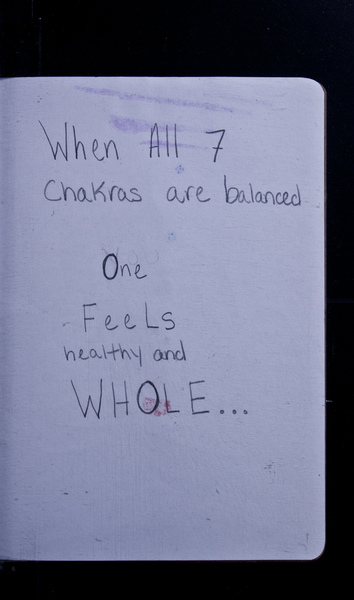 When All 7
Chakras are balanced
One
FeeLs
healthy and
WHOLE...